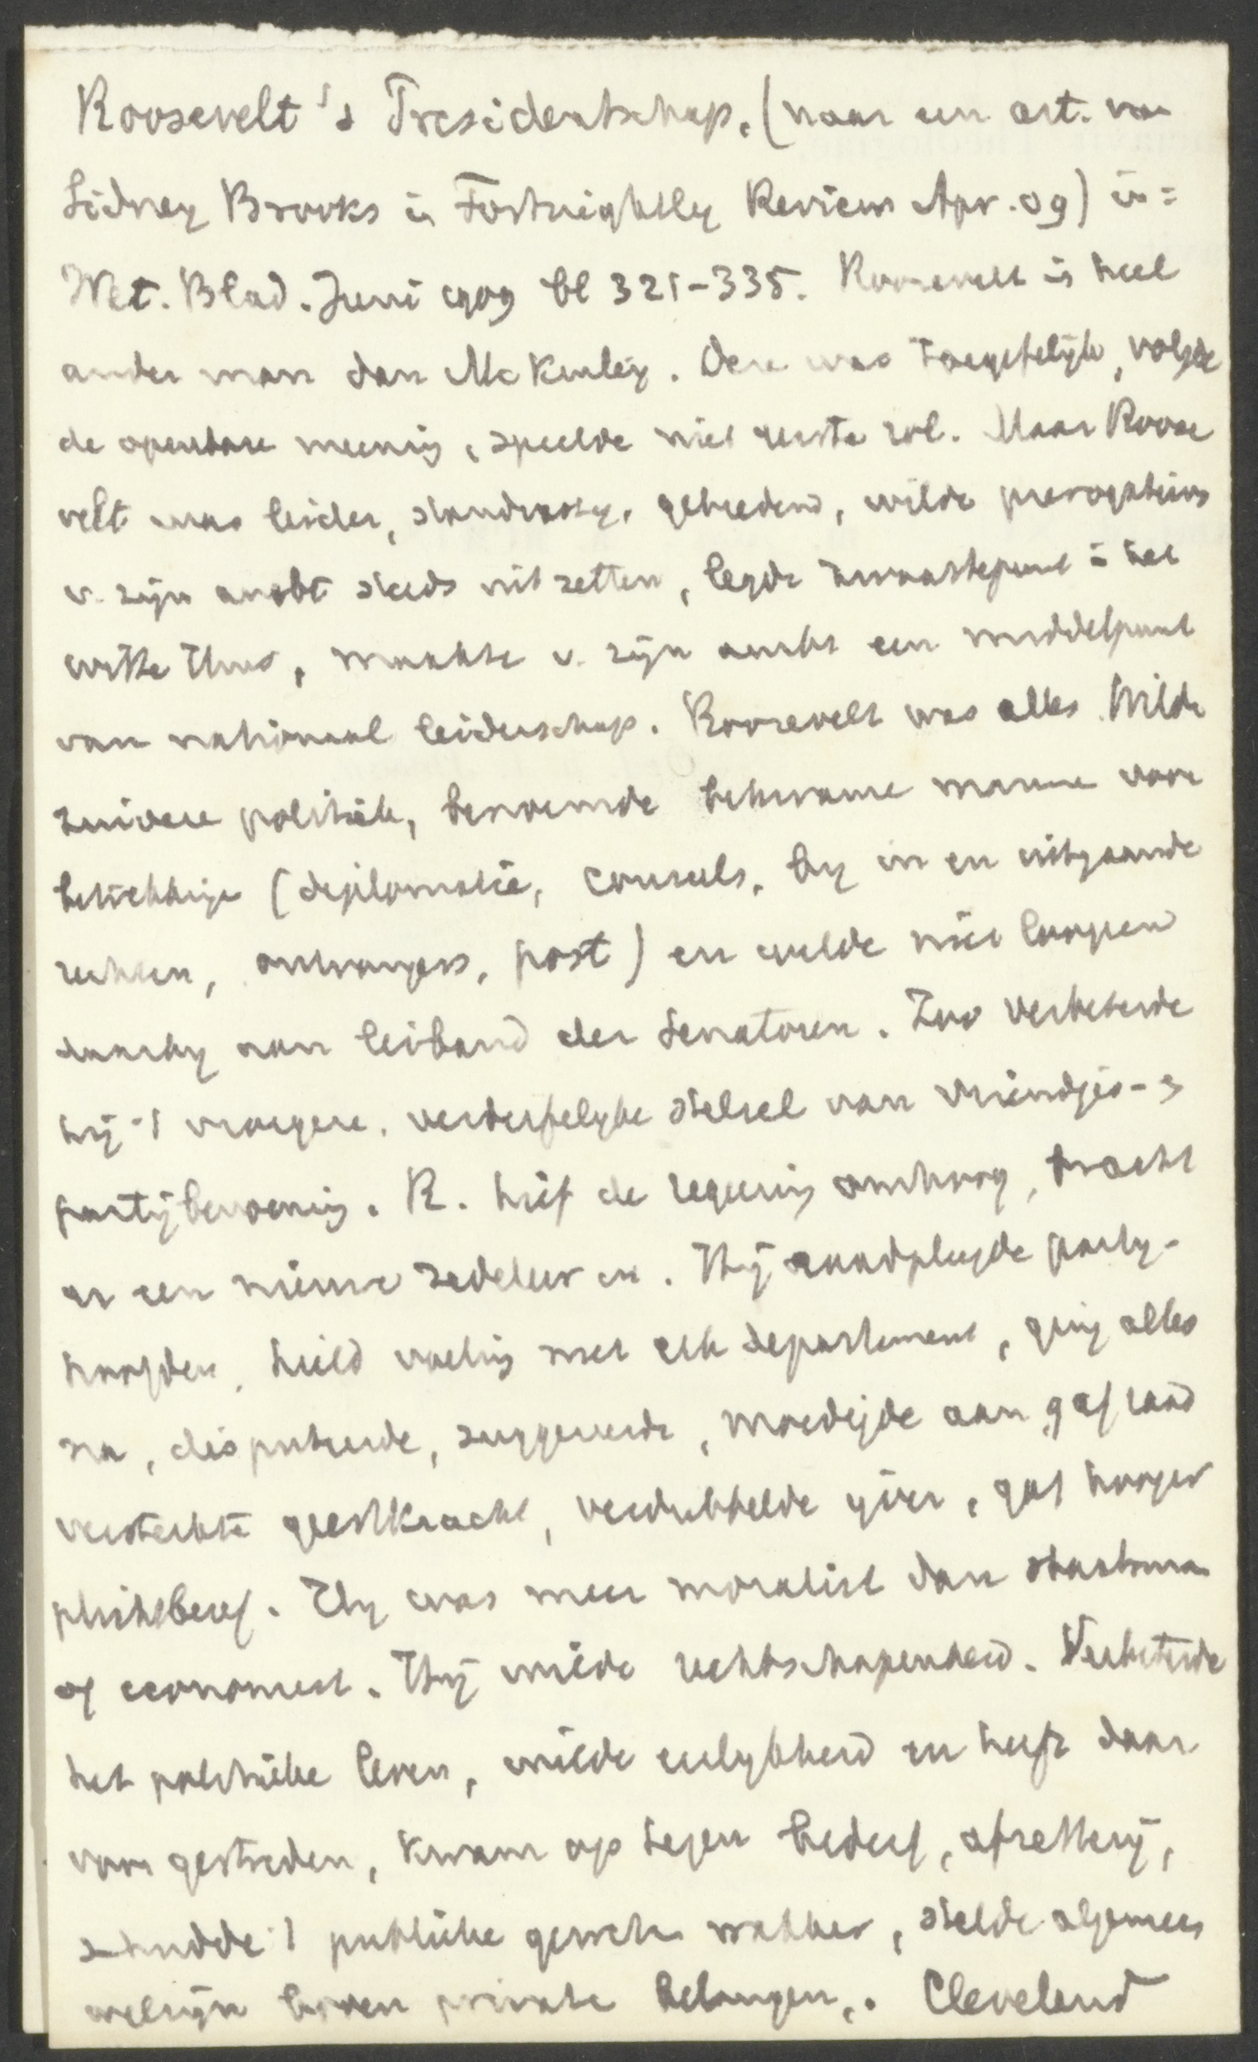 Roosevelt's Presidentschap. (naar een art. van
Sidney Brooks in Fortnightly Review Apr. 09) in:
Wet. Blad. Juni 1909 bl 321-335. Roosevelt is heel
ander man dan McKinley. Deze was toegefelijk, volgde
de openbare meening, speelde niet eerste rol. Maar Roose
velt was leider, standvastig, gebiedend, wilde prerogatieves
v. zijn ambt steeds uitzetten, legde zwaartepunt in het
witte Huis, maakte v. zijn ambt een middelpunt
van nationaal leiderschap. Roosevelt was alles. Wilde
zuivere politiek, benoemde bekwame mannen voor
betrekkingen (diplomatie, consuls, by in en uitgaande
rechten, ontvangers, post) en wilde niet loopen
daarby aan leiband der Senatoren. Zoo verbeterde
hij 't vroegere, verderfelyke stelsel van vriendjes- en
partijbenoeming. R. hief de regeering omhoog, bracht
er een nieuwe zedeleer in. Hij raadpleegde party-
hoofden, hield voeling met elk departement, ging alles
na, disputeerde, suggereerde, moedigde aan, gaf raad
versterkte geestkracht, verdubbelde ijver, gaf hooger
plichtbesef. Hy was meer moralist dan staatsman
of economist. Hij wilde rechtschapenheid. Verbeterde
het politieke leven, wilde eerlykheid en heeft daar
voor gestreden, kwam op tegen bederf, afzetterij,
schudde 't publieke geweten wakker, stelde algemeen
welzijn boven private belangen. Cleveland